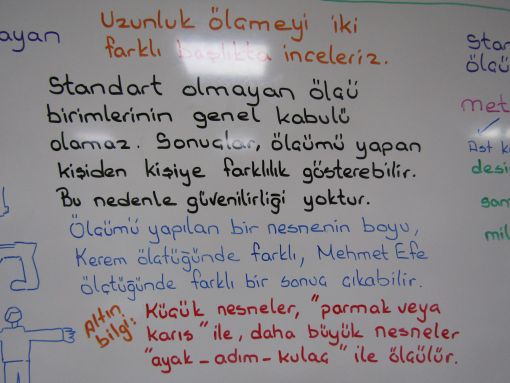 Uzunluk ölçmeyi iki
farklı başlıkta inceleriz.
ayan
Standart olmayan ölçü
birimlerinin genel kabulü
olamaz. Sonuçlar, ölçümü yapan
kişiden kişiye farklılık gösterebilir.
Bu nedenle güvenilirliği yoktur.
Ölçümü yapılan bir nesnenin boyu,
Kerem ölçtüğünde farklı, Mehmet Efe
ölçtüğünde farklı bir sonuç çıkabilir.
Altın
bilgi:
Küçük nesneler, "parmak veya
karış" ile, daha büyük nesneler
"ayak - adım - kulaç" ile ölçülür.
Stan
ölçü
met
Ast k
desi
san
mil